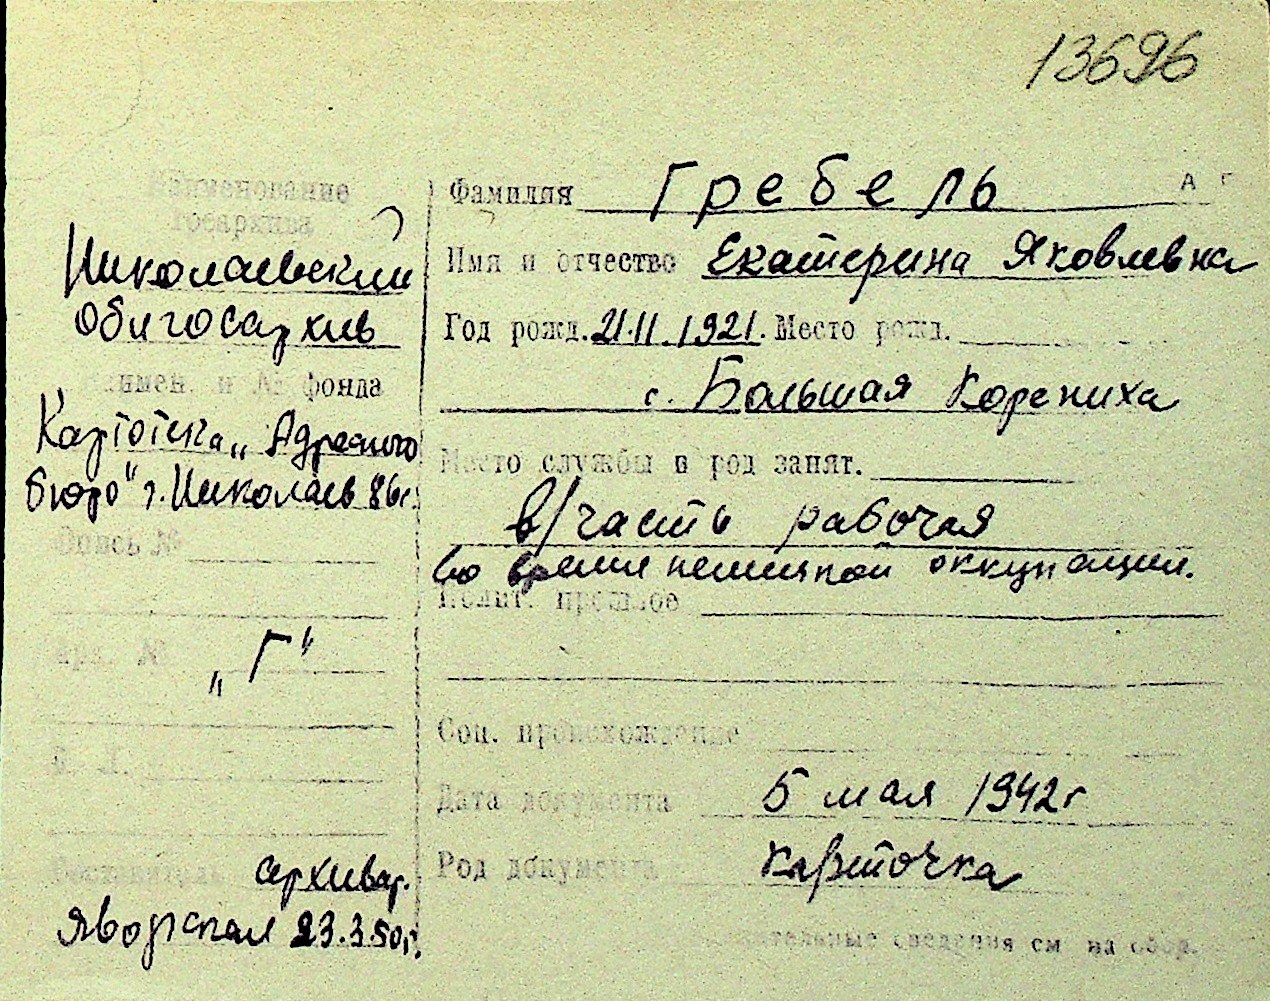 13696
Наименование
госархива
Николаевский
облгосархив
Наимен. и № фонда
Картотека „Адресного
бюро" г. Николаев
Опись №
Арх. №
„Г"
С. Л.
архивар.
Яворская 23.3.50г.
Фамилия Гребель
Имя и отчество Екатерина Яковлевна
Год рожд. 21.11.1921. Место рожд.
с. Большая Корениха
Место службы и род занят.
в/часть рабочая
во время немецкой оккупации.
Полит. прошлое
Соц. происхождение
Дата документа 5 мая 1942г
Род документа карточка
сведения см на обор.